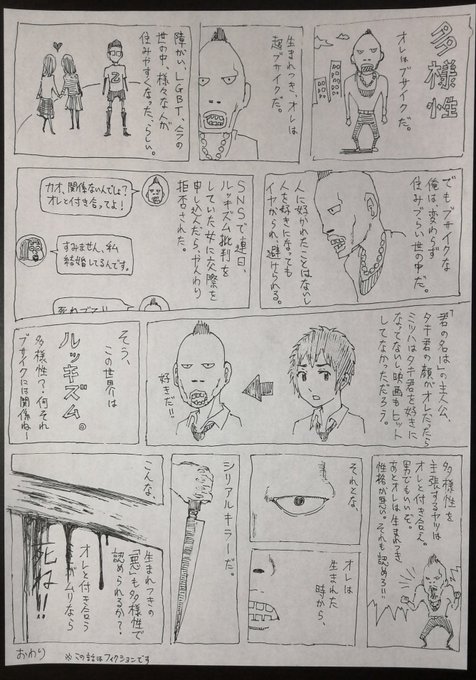 多様性
オレはブサイクだ。
生まれつき、オレは
超ブサイクだ。
障がい、LGBT、今の
世の中、様々な人が
住みやすくなった、らしい。
でもブサイクな
俺は、変わらず
住みづらい世の中だ。
人に好かれたことはないし
人を好きになっても
イヤがられ、避けられる。
SNSで連日、
ルッキズム批判を
していた女に交際を
申し込んだら、やんわり
拒否された。
カオ、関係ないんでしょ?
オレと付き合ってよ!
すみません、私
結婚してるんです。
死ねブス!!
「君の名は」の主人公、
タキ君の顔がオレだったら
ミツハはタキ君を好きに
なってないし、映画もヒット
してなかっただろう。
好きだ!!
そう、
この世界は
ルッキズム。
多様性?何それ
ブサイクには関係ねー
多様性を
主張するヤツは
オレと付き合え。
男でもいいぞ。
あとオレは生まれつき
性格が悪い。それも認めろ!!
それとな、
オレは
生まれた
時から、
シリアルキラーだ。
こんな、
生まれつきの
「悪」も多様性で
認められるか?
オレと付き合う
死ね!!
おわり
※この話はフィクションです